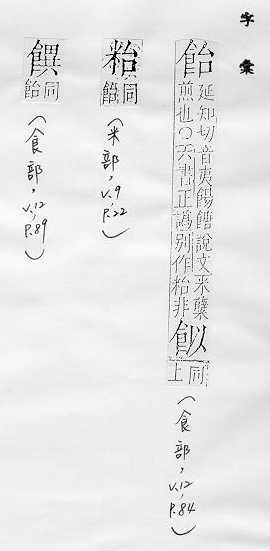 字彙
飴
延知切音夷餳餹說文米櫱
煎也○六書正譌別作非
同
上
(食部,V.12,P.84)
同
飴
(米部,V.9,P.22)
同
飴
(食部,V.12,P.89)